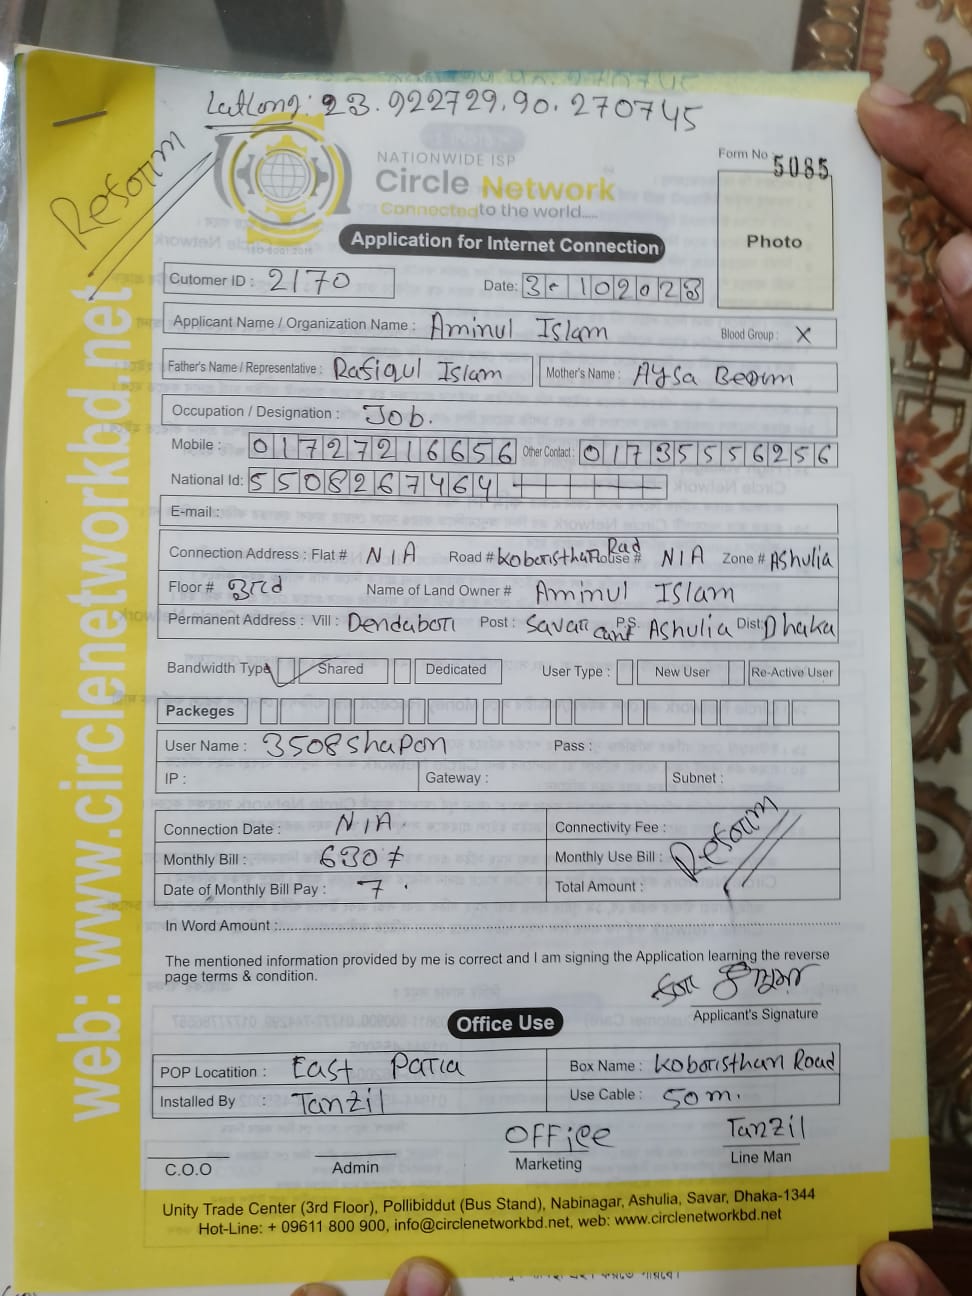 LatLong: 23.922729,90.270745
Reform
NATIONWIDE ISP
Circle Network
Connected to the world....
Form No 5085
Photo
Application for Internet Connection
Cutomer ID : 2170
Date: 3- 102023
Applicant Name / Organization Name : Aminul Islam Blood Group : X
Father's Name / Representative : Rafiqul Islam Mother's Name : Aysa Begum
Occupation / Designation : Job.
Mobile : 01727216656 Other Contact : 01735556256
National Id: 5508267464
E-mail :
Connection Address : Flat # N/A Road # Koboristhan Road House # N/A Zone # Ashulia
Floor # 3rd Name of Land Owner # Aminul Islam
Permanent Address : Vill : Dendabori Post : Savar Cant P.S. Ashulia Dist: Dhaka
Bandwidth Type Shared Dedicated User Type : New User Re-Active User
Packeges
User Name : 3508shapon Pass :
IP : Gateway : Subnet :
Connection Date : N/A. Connectivity Fee :
Monthly Bill : 630 Monthly Use Bill :
Date of Monthly Bill Pay : 7 . Total Amount :
Reform
In Word Amount :
The mentioned information provided by me is correct and I am signing the Application learning the reverse
page terms & condition.
Applicant's Signature
Office Use
POP Locatition : East Para Box Name : Koboristhan Road
Installed By : Tanzil Use Cable : 50m.
OFFice Tanzil
C.O.O Admin Marketing Line Man
Unity Trade Center (3rd Floor), Pollibiddut (Bus Stand), Nabinagar, Ashulia, Savar, Dhaka-1344
Hot-Line: + 09611 800 900, info@circlenetworkbd.net, web: www.circlenetworkbd.net
web: www.circlenetworkbd.net